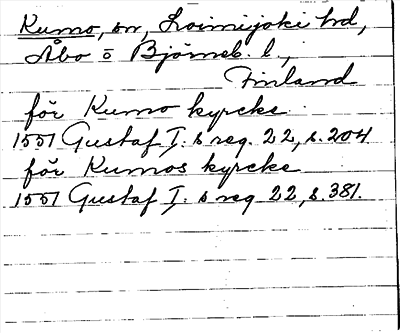 Kumo, sn, Loimijoki hd,
Åbo o Björneb. l.,
Finland
för Kumo kyrcke
1551 Gustaf I: s reg. 22, s. 204
för Kumos kyrcke
1551 Gustaf I: s reg 22, s. 381.